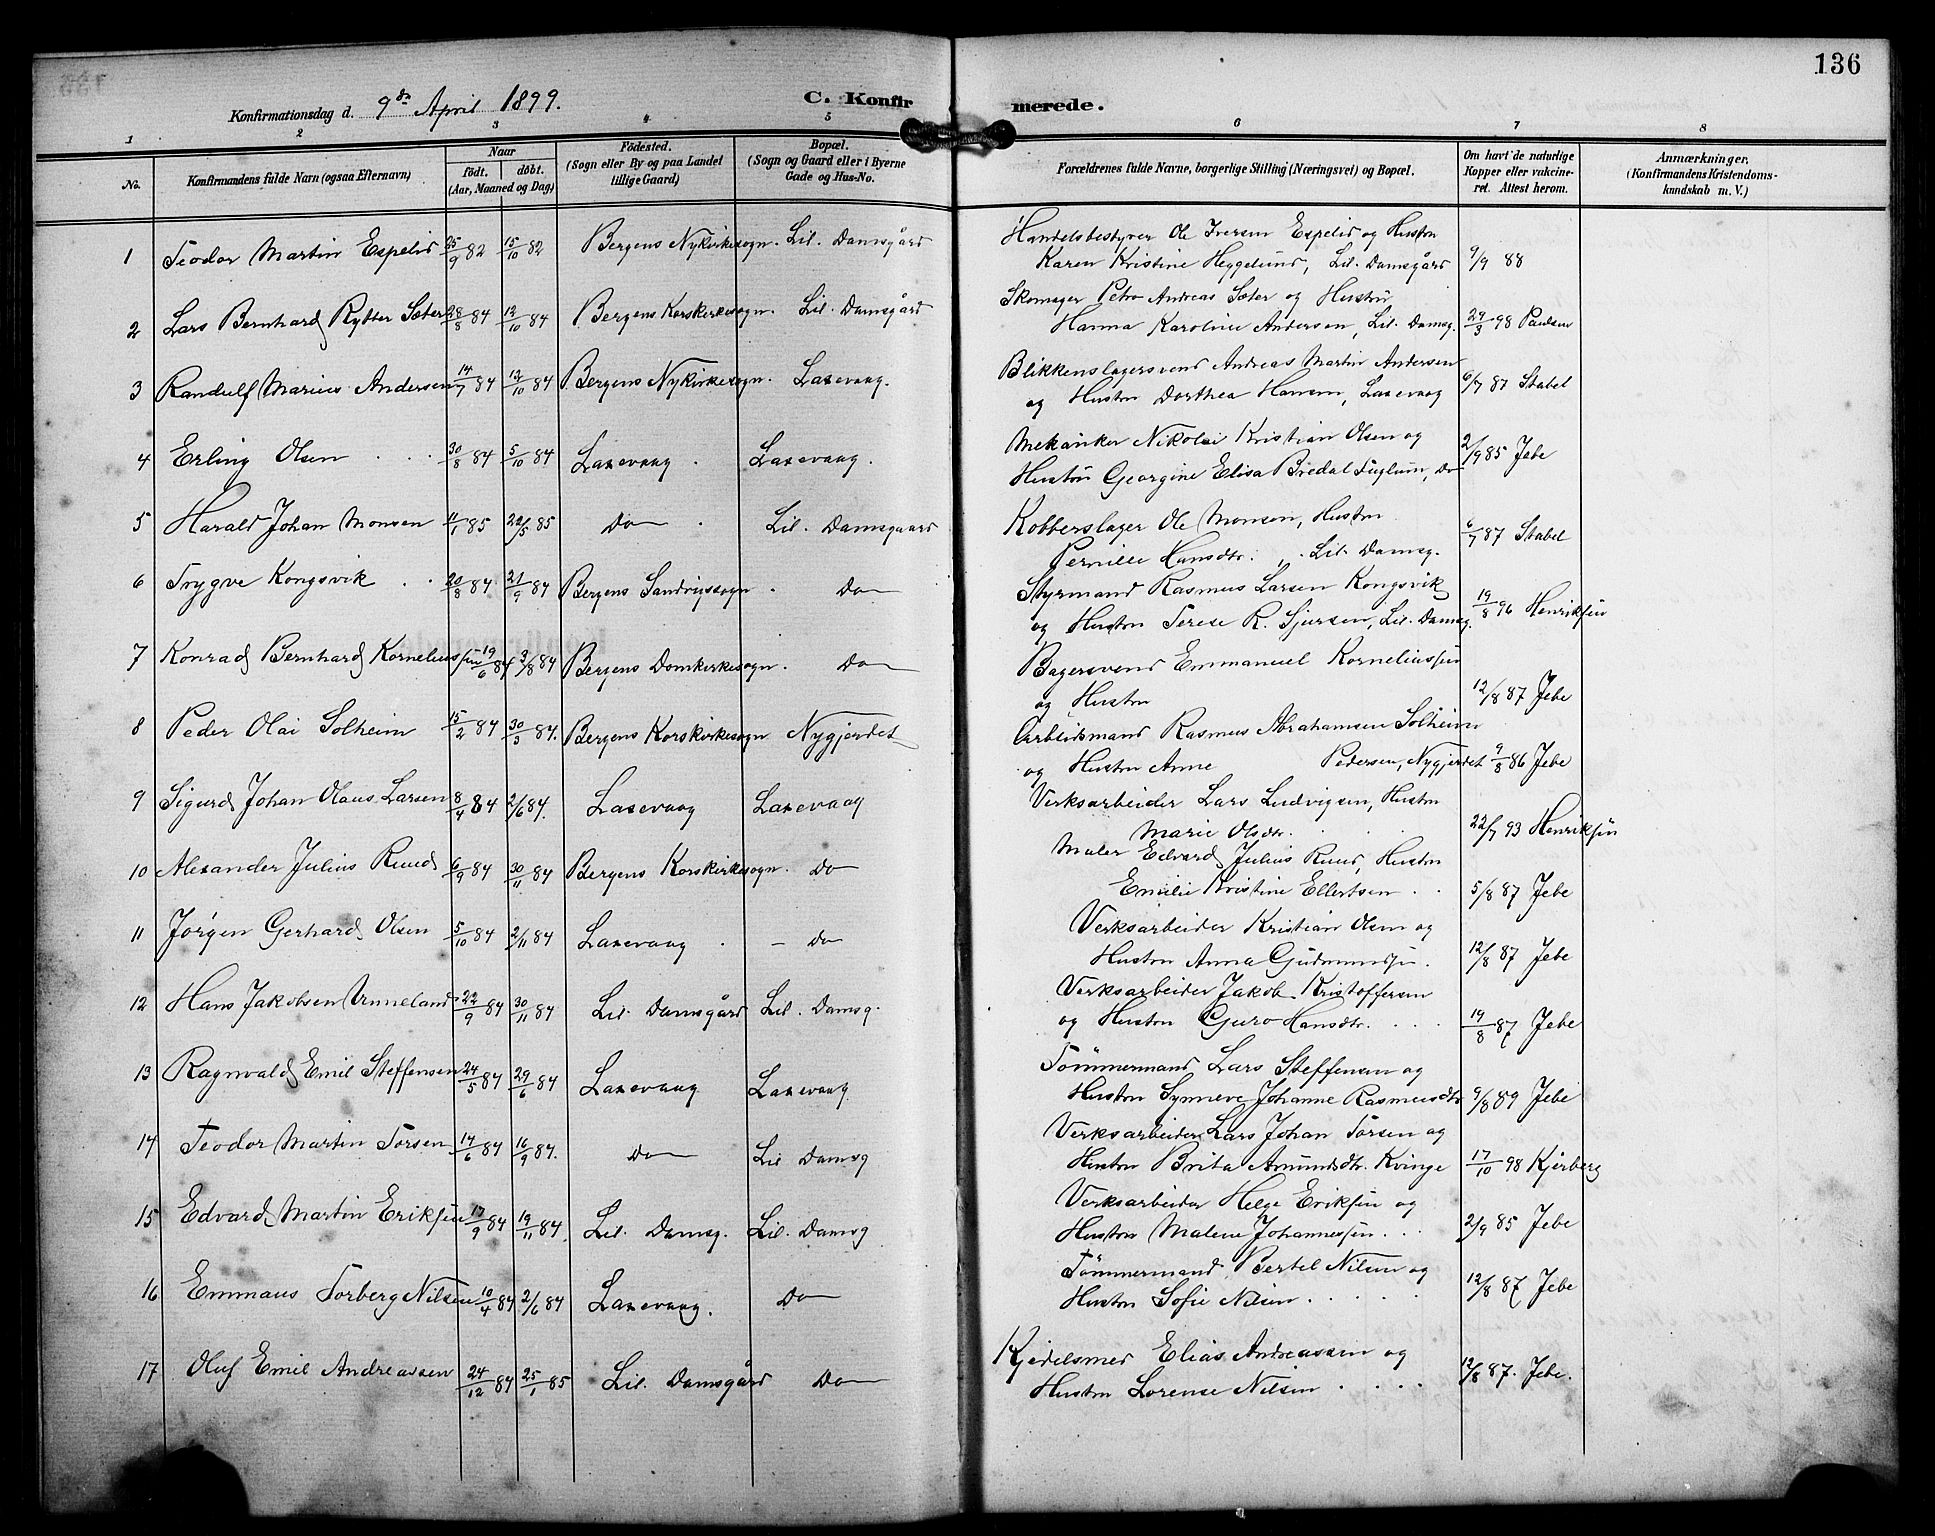 136
Konfirmationsdag d. 9de April 1899.
C. Konfirmerede.
1 2 3 4 5 6 7 8
No.
Konfirmandens fulde Navn (ogsaa Efternavn)
Naar
födt. döbt.
(Aar, Maaned og Dag)
Födested.
(Sogn eller By og paa Landet tillige Gaard)
Bopæl.
(Sogn og Gaard eller i Byerne Gade og Hus-No.
Forældrenes fulde Navne, borgerlige Stilling (Næringsvei) og Bopæl.
Om havt de naturlige Kopper eller vakcineret. Attest herom.
Anmærkninger,
(Konfirmandens Kristendomskundskab m. V.)
1 Teodor Martin Espelid 25/9 82 15/10 82 Bergens Nykirkesogn. Lil. Damsgård Handelsbestyrer Ole Iversen Espelid og Hustru
Karen Kristine Heggelund, Lil. Damsgård 9/9 88
2 Lars Bernhard Rytter Sæter 28/8 84 12/10 84 Bergens Korskirkesogn. Lil. Damsgård Skomager Petro Andreas Sæter og Hustru
Hanna Karoline Andersen, Lil. Damsg. 29/3 98 Paulsen
3 Randulf Marius Andersen 14/7 84 12/10 84 Bergens Nykirkesogn. Laxevaag. Blikkenslagersvend Andreas Martin Andersen
og Hustru Dorthea Hansen, Laxevaag 6/7 87 Stabel
4 Erling Olsen 30/8 84 5/10 84 Laxevaag. Laxevaag. Mekaniker Nikolai Kristian Olsen og
Hustru Georgine Elisa Bredal Fuglum, Do 2/9 85 Jebe
5 Harald Johan Monsen 11/1 85 22/5 85 Do Lil. Damsgaard Kobberslager Ole Monsen, Hustru
Pernille Hansdtr., Lil. Damsg. 6/7 87 Stabel
6 Trygve Kongsvik 20/8 84 21/9 84 Bergens Sandvigssogn Do Styrmand Rasmus Larsen Kongsvik
og Hustru Terese R. Sjursen, Lil. Damsg. 19/8 96 Henriksen
7 Konrad Bernhard Korneliussen 19/6 84 3/8 84 Bergens Domkirkesogn. Do Bagersvend Emmanuel Korneliussen
og Hustru 12/8 87 Jebe
8 Peder Olai Solheim 15/2 84 30/3 84. Bergens Korskirkesogn Nygjerdet Arbeidsmand Rasmus Abrahamsen Solheim
og Hustru Anne Pedersen, Nygjerdet 9/8 86 Jebe
9 Sigurd Johan Olaus Larsen 8/4 84 2/6 84. Laxevaag Laxevaag Verksarbeider Lars Ludvigsen, Hustru
Marie Olsdtr. 22/7 93 Henriksen
10 Alexander Julius Ruud 6/9 84 30/11 84 Bergens Korskirkesogn. Do Maler Edvard Julius Ruud, Hustru
Emilie Kristine Ellertsen 5/8 87 Jebe
11 Jörgen Gerhard Olsen 5/10 84 2/11 84 Laxevaag - Do Verksarbeider Kristian Olsen og
Hustru Anna Gudmundsen. 12/8 87 Jebe
12 Hans Jakobsen Unneland 22/9 84 30/11 84 Lil. Damsgård Lil. Damsg. Verksarbeider Jakob Kristoffersen
og Hustru Guro Hansdtr. 19/8 87 Jebe
13 Ragnvald Emil Steffensen 24/5 84 29/6 84 Laxevaag Laxevaag Tömmermand Lars Steffensen og
Hustru Synneve Johanne Rasmusdtr 9/8 89 Jebe
14 Teodor Martin Torsen 14/6 84 16/9 84. Do Lil Damsg Verksarbeider Lars Johan Torsen og
Hustru Brita Amundsdtr. Kvinge 17/10 98 Kjerberg
15 Edvard Martin Eriksen 17/9 84 19/11 84. Lil. Damsg. Lil. Damsg Verksarbeider Helge Eriksen og
Hustru Malene Johannessen. 2/9 85 Jebe
16 Emmaus Torberg Nilsen 10/4 84 2/6 84 Laxevaag. Do Tömmermand Bertel Nilsen og
Hustru Sofie Nilsen 12/8 87 Jebe
17 Oluf Emil Andreassen 24/12 84 25/1 85 Lil. Damsgård Do Kjedelsmed Elias Andreassen og
Hustru Lorense Nilsen 12/8 87. Jebe.